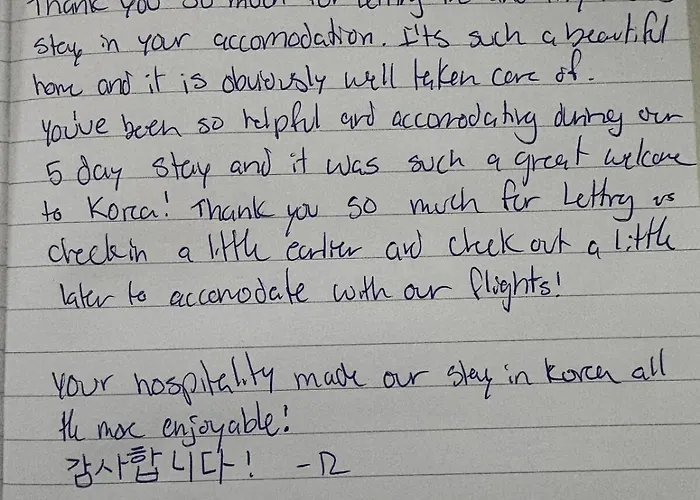 Thank you so much for letting me and my
stay in your accomodation. It's such a beautiful
home and it is obviously well taken care of.
You've been so helpful and accomodating during our
5 day stay and it was such a great welcome
to Korea! Thank you so much for letting us
check in a little earlier and check out a little
later to accomodate with our flights!
Your hospitality made our stay in Korea all
the more enjoyable!
감사합니다! -